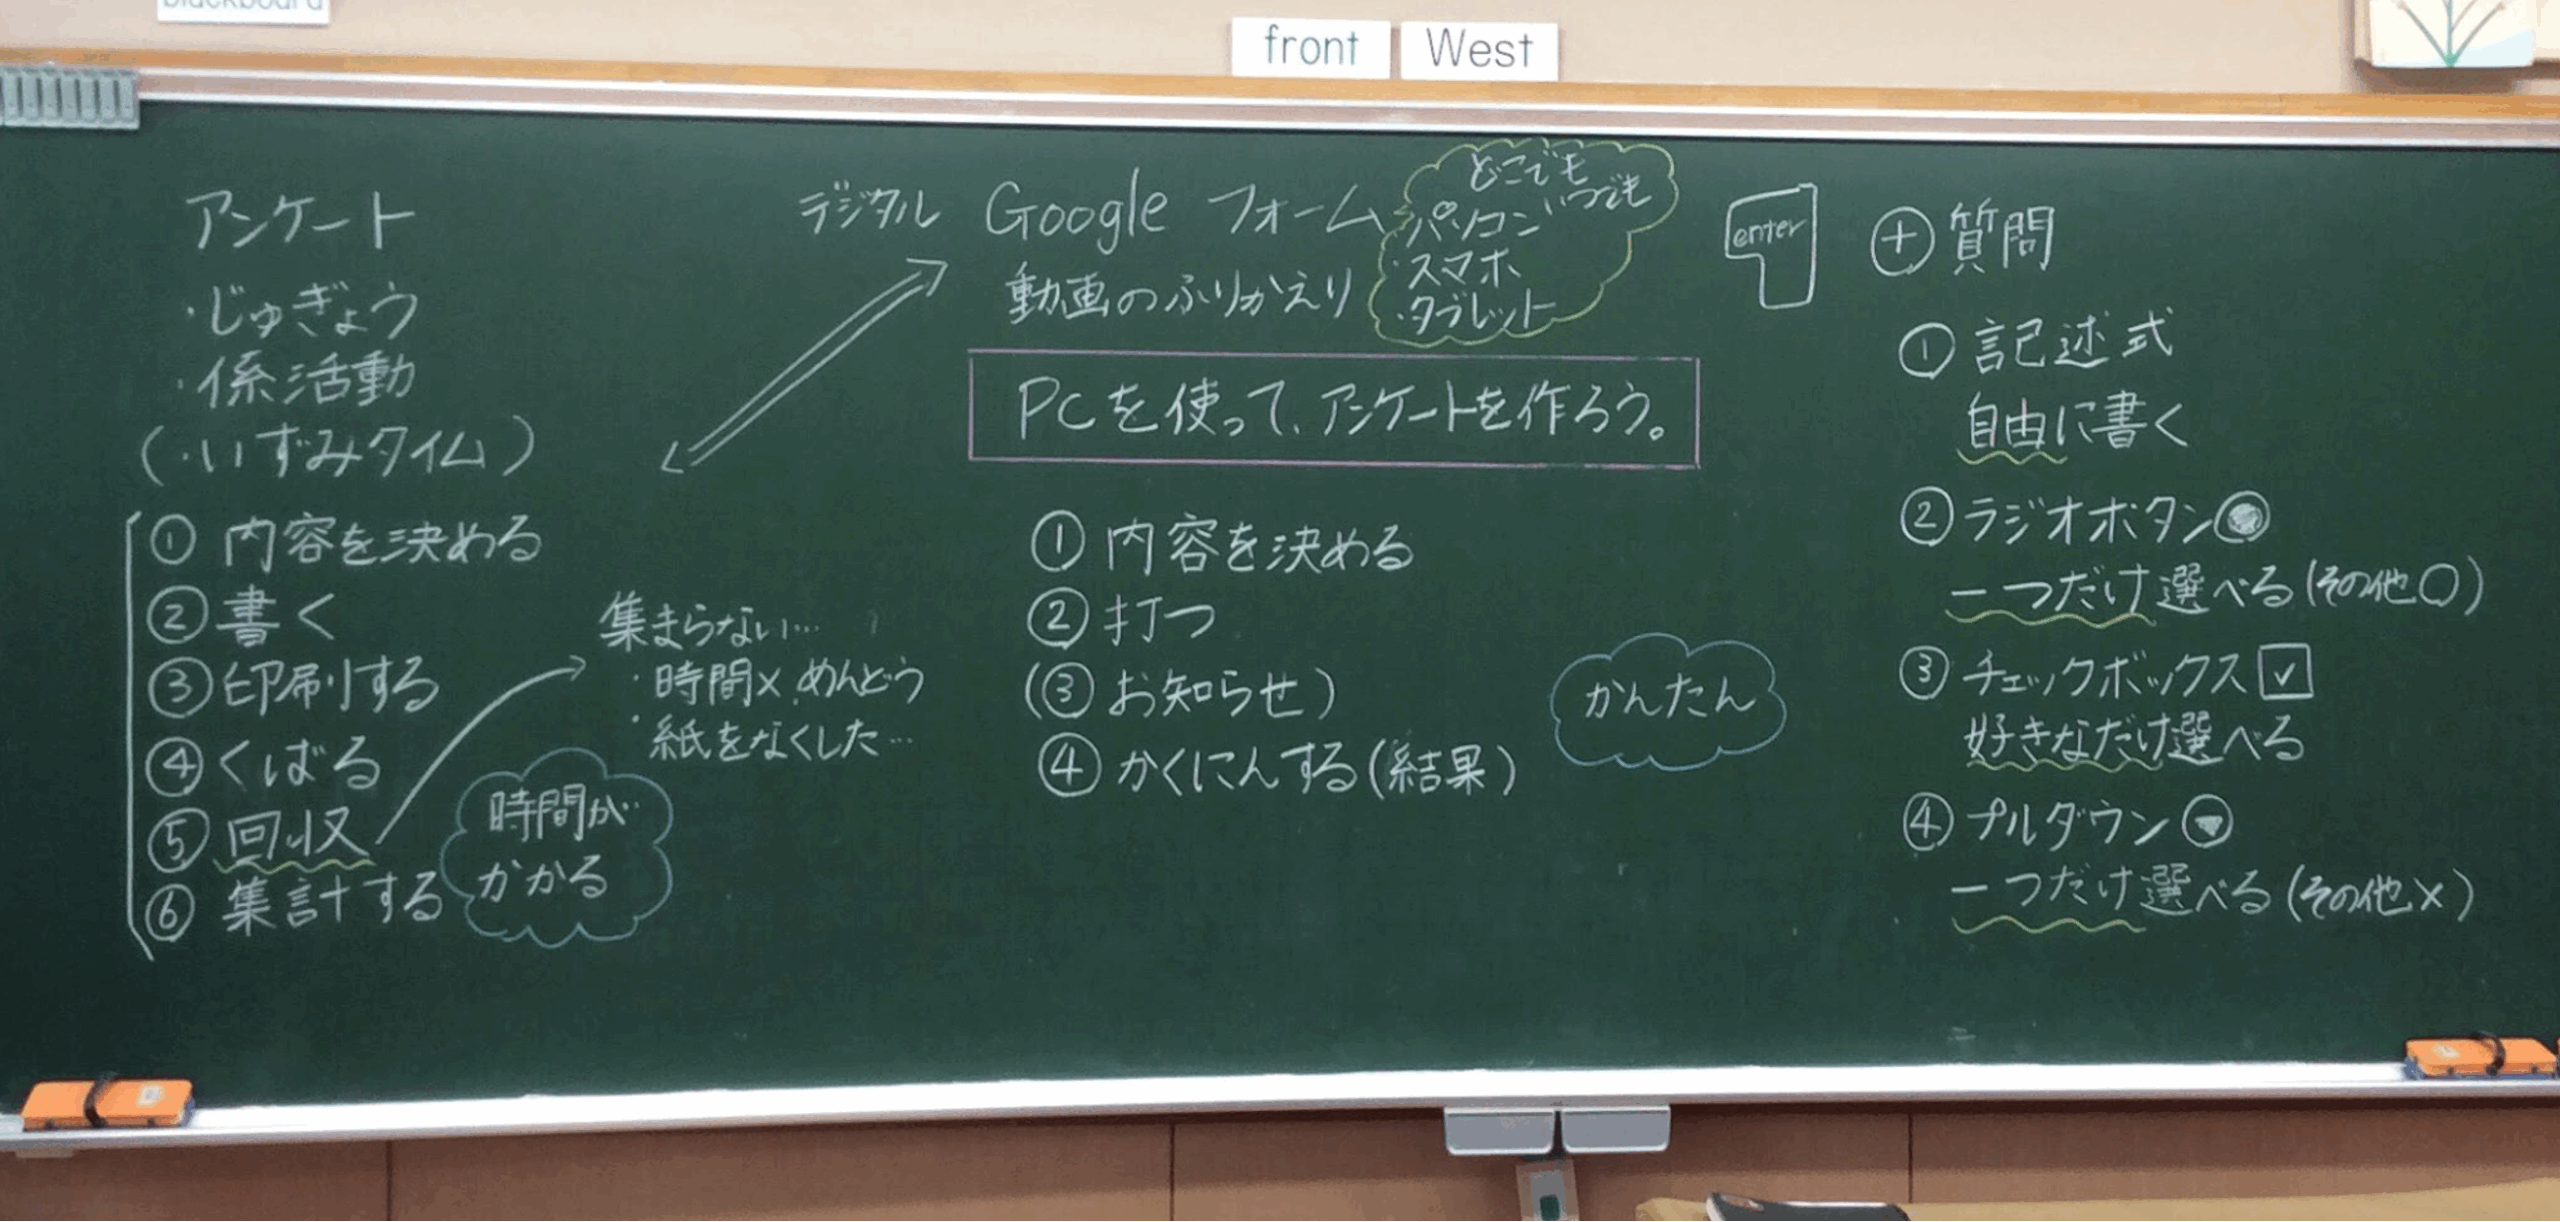 blackboard
front West
アンケート
・じゅぎょう
・係活動
(・いずみタイム)
① 内容を決める
② 書く
③ 印刷する
④ くばる
⑤ 回収
⑥ 集計する
時間が
かかる
集まらない…
・時間× めんどう
・紙をなくした…
デジタル Google フォーム
動画のふりかえり
どこでも
いつでも
・パソコン
・スマホ
・タブレット
PCを使って、アンケートを作ろう。
① 内容を決める
② 打つ
(③ お知らせ)
④ かくにんする(結果)
かんたん
enter
⊕ 質問
① 記述式
自由に書く
② ラジオボタン◉
一つだけ選べる(その他○)
③ チェックボックス☑
好きなだけ選べる
④ プルダウン
一つだけ選べる(その他×)